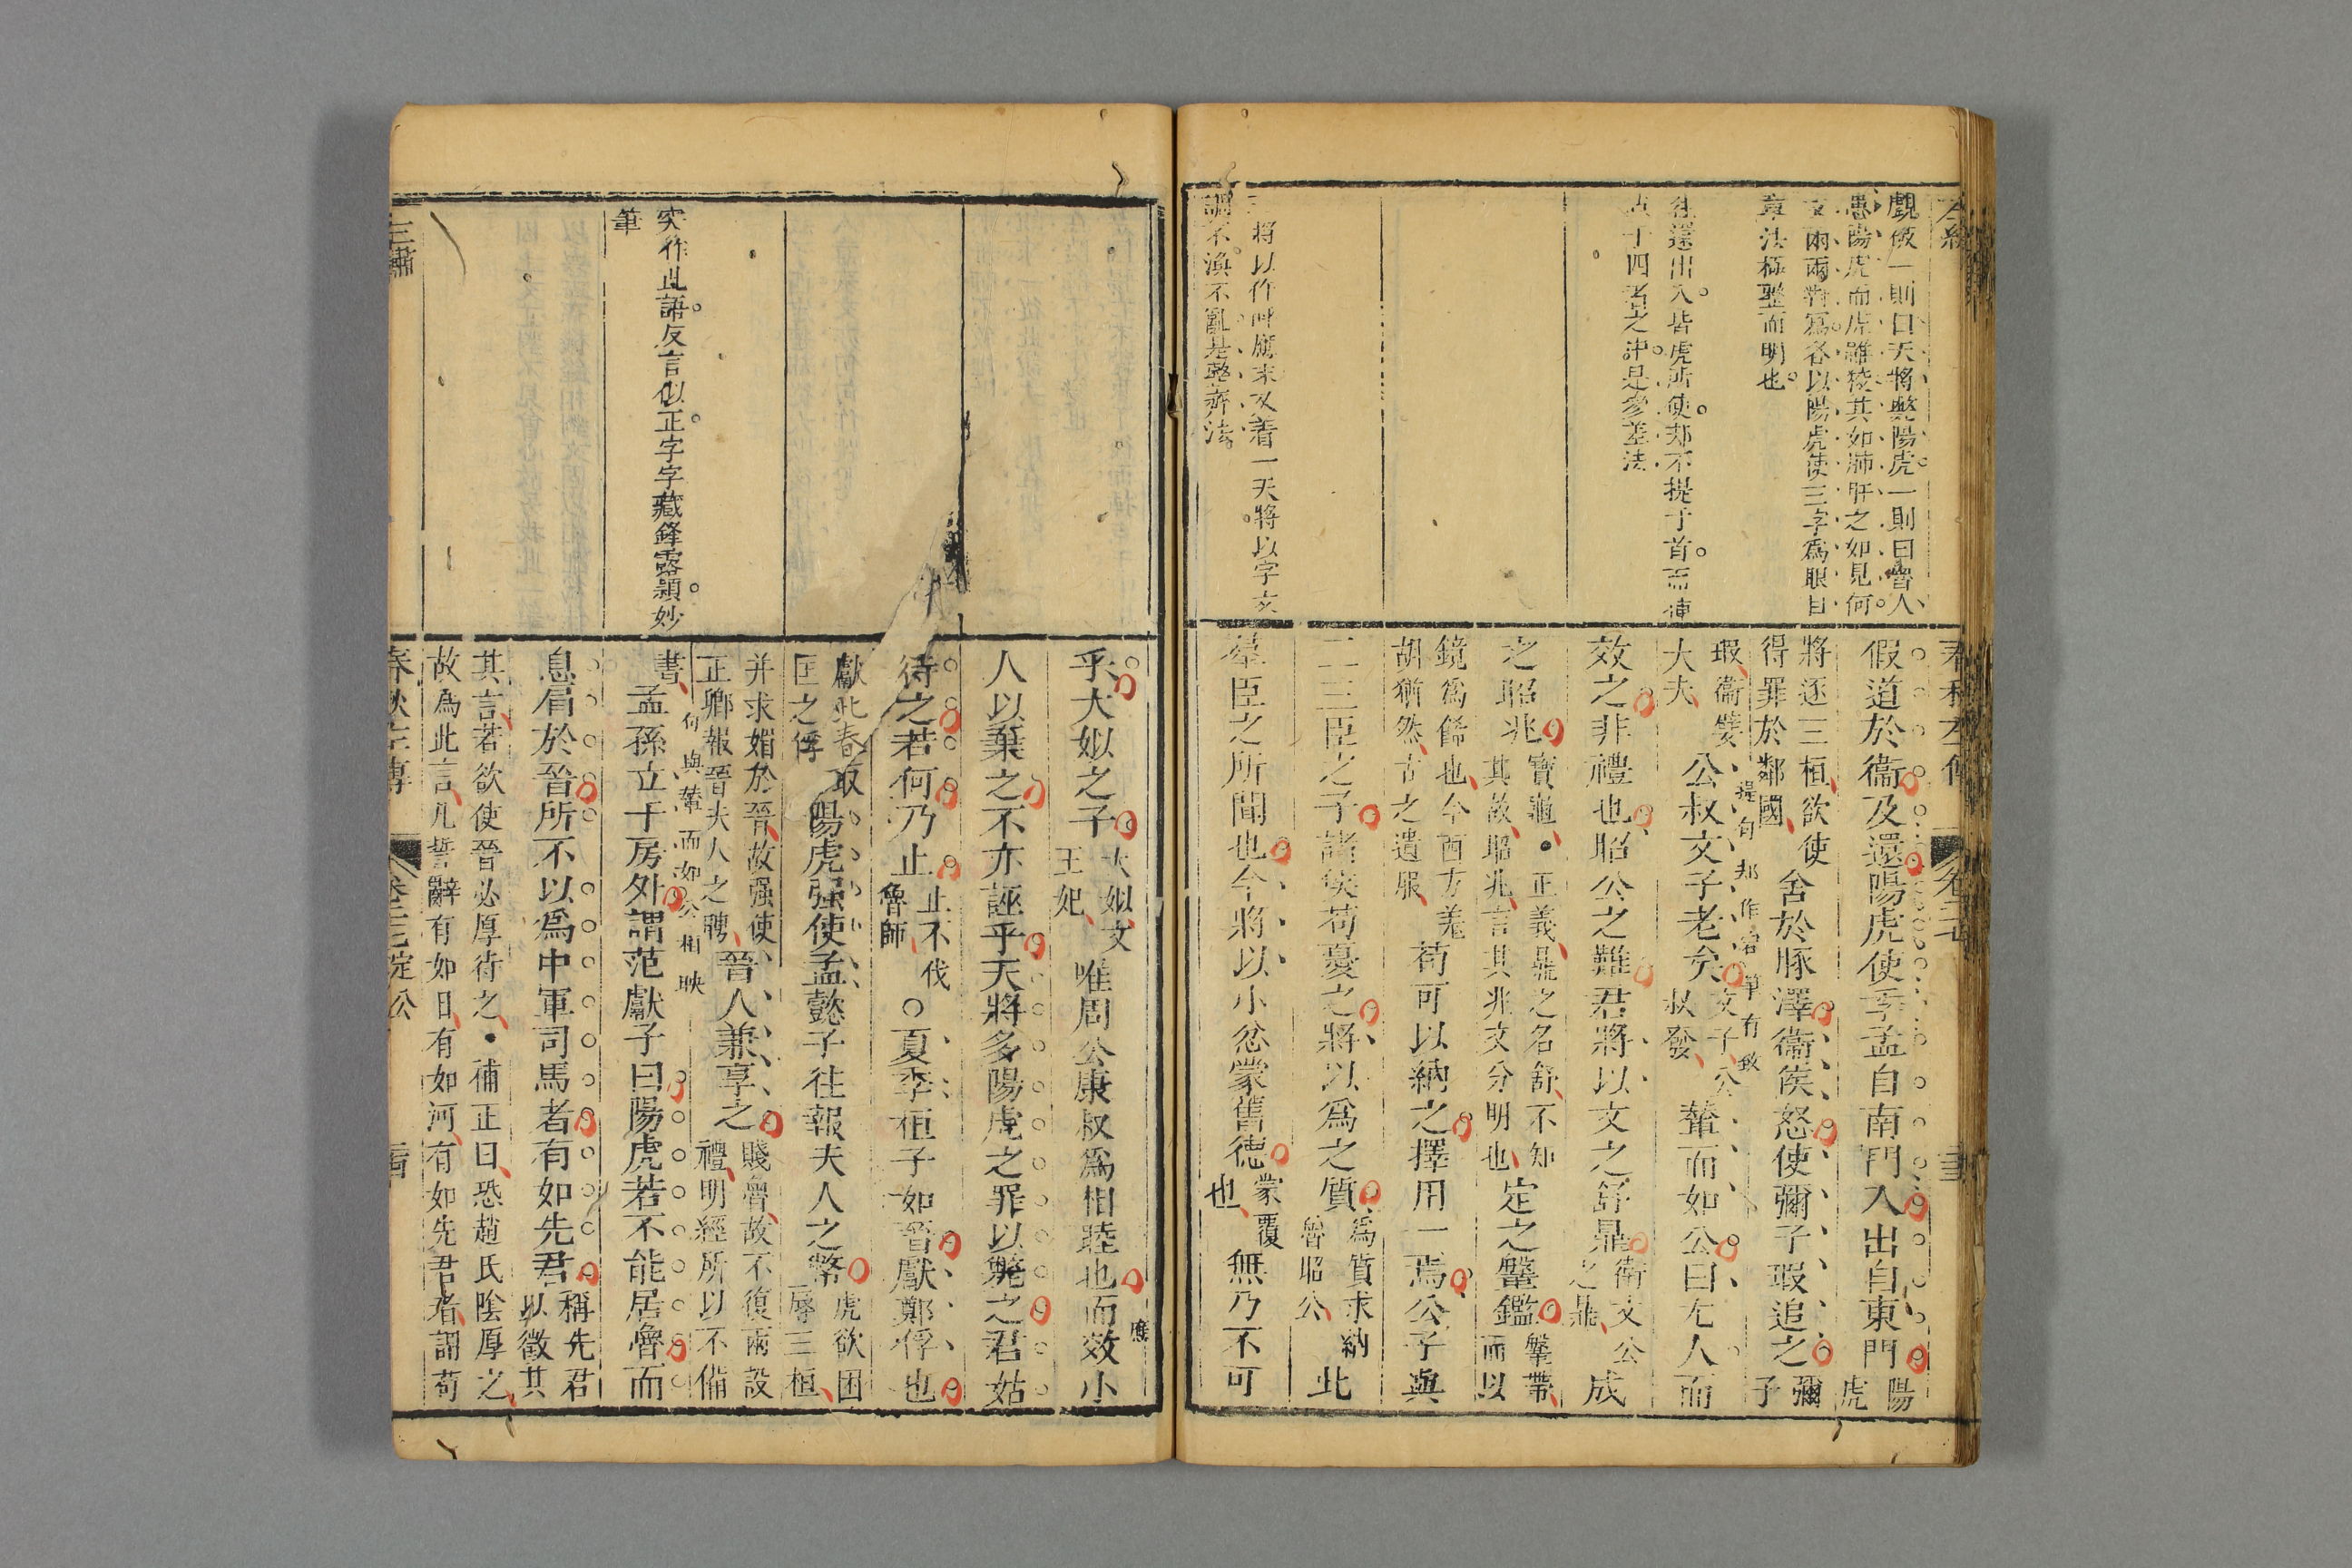 觀彼一則曰天將斃陽虎一則曰晉人
愚陽虎而虎雖狡其如肺肝之如見何
文兩兩對寫各以陽虎使三字爲眼目
章法極整而明也
往還出入皆虎所使却不提于首而連
四者之中是參差法
將以作叫應末又着一天將以字文
調不渙不亂是整齊法
春秋左傳
卷二七
假道於衞及還陽虎使季孟自南門入出自東門陽
虎
將逐三桓欲使
得罪於鄰國
舍於豚澤衞侯怒使彌子瑕追之彌
子
瑕衞嬖
大夫
公叔文子老矣文子公
叔發
輦而如公曰尤人而
提句却作字筆有致
效之非禮也昭公之難君將以文之舒鼎衞文公
之鼎
成
之昭兆寶龜●正義鼎之名舒不知
其故昭兆言其兆文分明也
定之鞶鑑鞶帶
而以
鏡爲餙也今西方羌
胡猶然古之遺服
苟可以納之擇用一焉公子與
二三臣之子諸侯苟憂之將以爲之質爲質求納
魯昭公
此
羣臣之所聞也今將以小忿蒙舊德蒙覆
也
無乃不可
乎大姒之子大姒文
王妃
唯周公康叔爲相睦也而效小
應
人以棄之不亦誣乎天將多陽虎之罪以斃之君姑
待之若何乃止止不伐
魯師
○夏季桓子如晉獻鄭俘也
獻此春取
匡之俘
陽虎强使孟懿子往報夫人之幣虎欲困
辱三桓
并求媚於晉故强使
正卿報晉夫人之聘
晉人兼享之賤魯故不復兩設
禮明經所以不備
書
句與輦而如公相映
孟孫立于房外謂范獻子曰陽虎若不能居魯而
息肩於晉所不以爲中軍司馬者有如先君稱先君
以徵其
其言若欲使晉必厚待之●補正曰恐趙氏陰厚之
故爲此言凡誓辭有如日有如河有如先君者謂苟
突作此語反言似正字字藏鋒露穎妙
筆
春秋左傳
卷二七定公